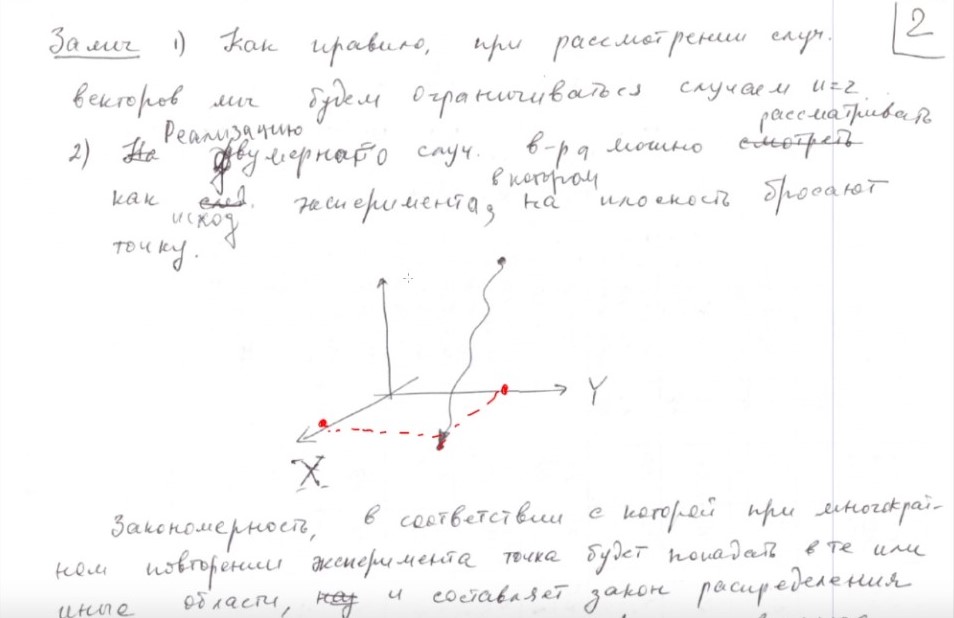 2
Замеч 1) Как правило, при рассмотрении случ.
векторов мы будем ограничиваться случаем n=2
Реализацию рассматривать
2) На двумерного случ. в-ра можно смотреть
в котором
как след. эксперимента, на плоскость бросают
исход
точку.
Y
X
Закономерность, в соответствии с которой при многократ-
ном повторении эксперимента точка будет попадать в те или
иные области, и составляет закон распределения